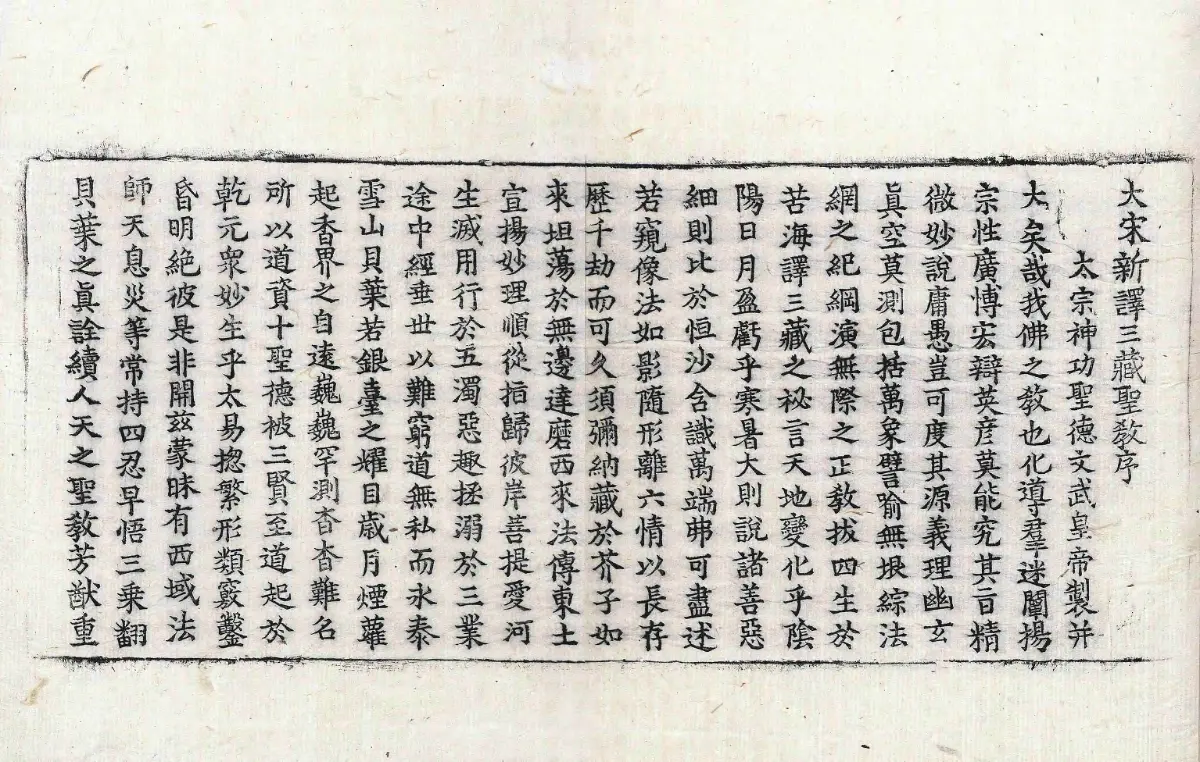 大宋新譯三藏聖教序
太宗神功聖德文武皇帝製并
大矣哉我佛之教也化導羣迷闡揚
宗性廣愽宏辯英彦莫能究其旨精
微妙說庸愚豈可度其源義理幽玄
真空莫測包括萬象譬喻無垠綜法
網之紀綱演無際之正教拔四生於
苦海譯三藏之祕言天地變化乎陰
陽日月盈虧乎寒暑大則說諸善惡
細則比於恒沙含識萬端弗可盡述
若窺像法如影隨形離六情以長存
歷千劫而可久須彌納藏於芥子如
來坦蕩於無邊達磨西來法傳東土
宣揚妙理順從指歸彼岸菩提愛河
生滅用行於五濁惡趣拯溺於三業
途中經垂世以難窮道無私而永泰
雪山貝葉若銀臺之耀目歲月煙蘿
起香界之自遠巍巍罕測杳杳難名
所以道資十聖德被三賢至道起於
乾元衆妙生乎太易揔繁形類竅鑿
昏明絕彼是非開茲蒙昧有西域法
師天息災等常持四忍早悟三乘翻
貝葉之真詮續人天之聖教芳猷重